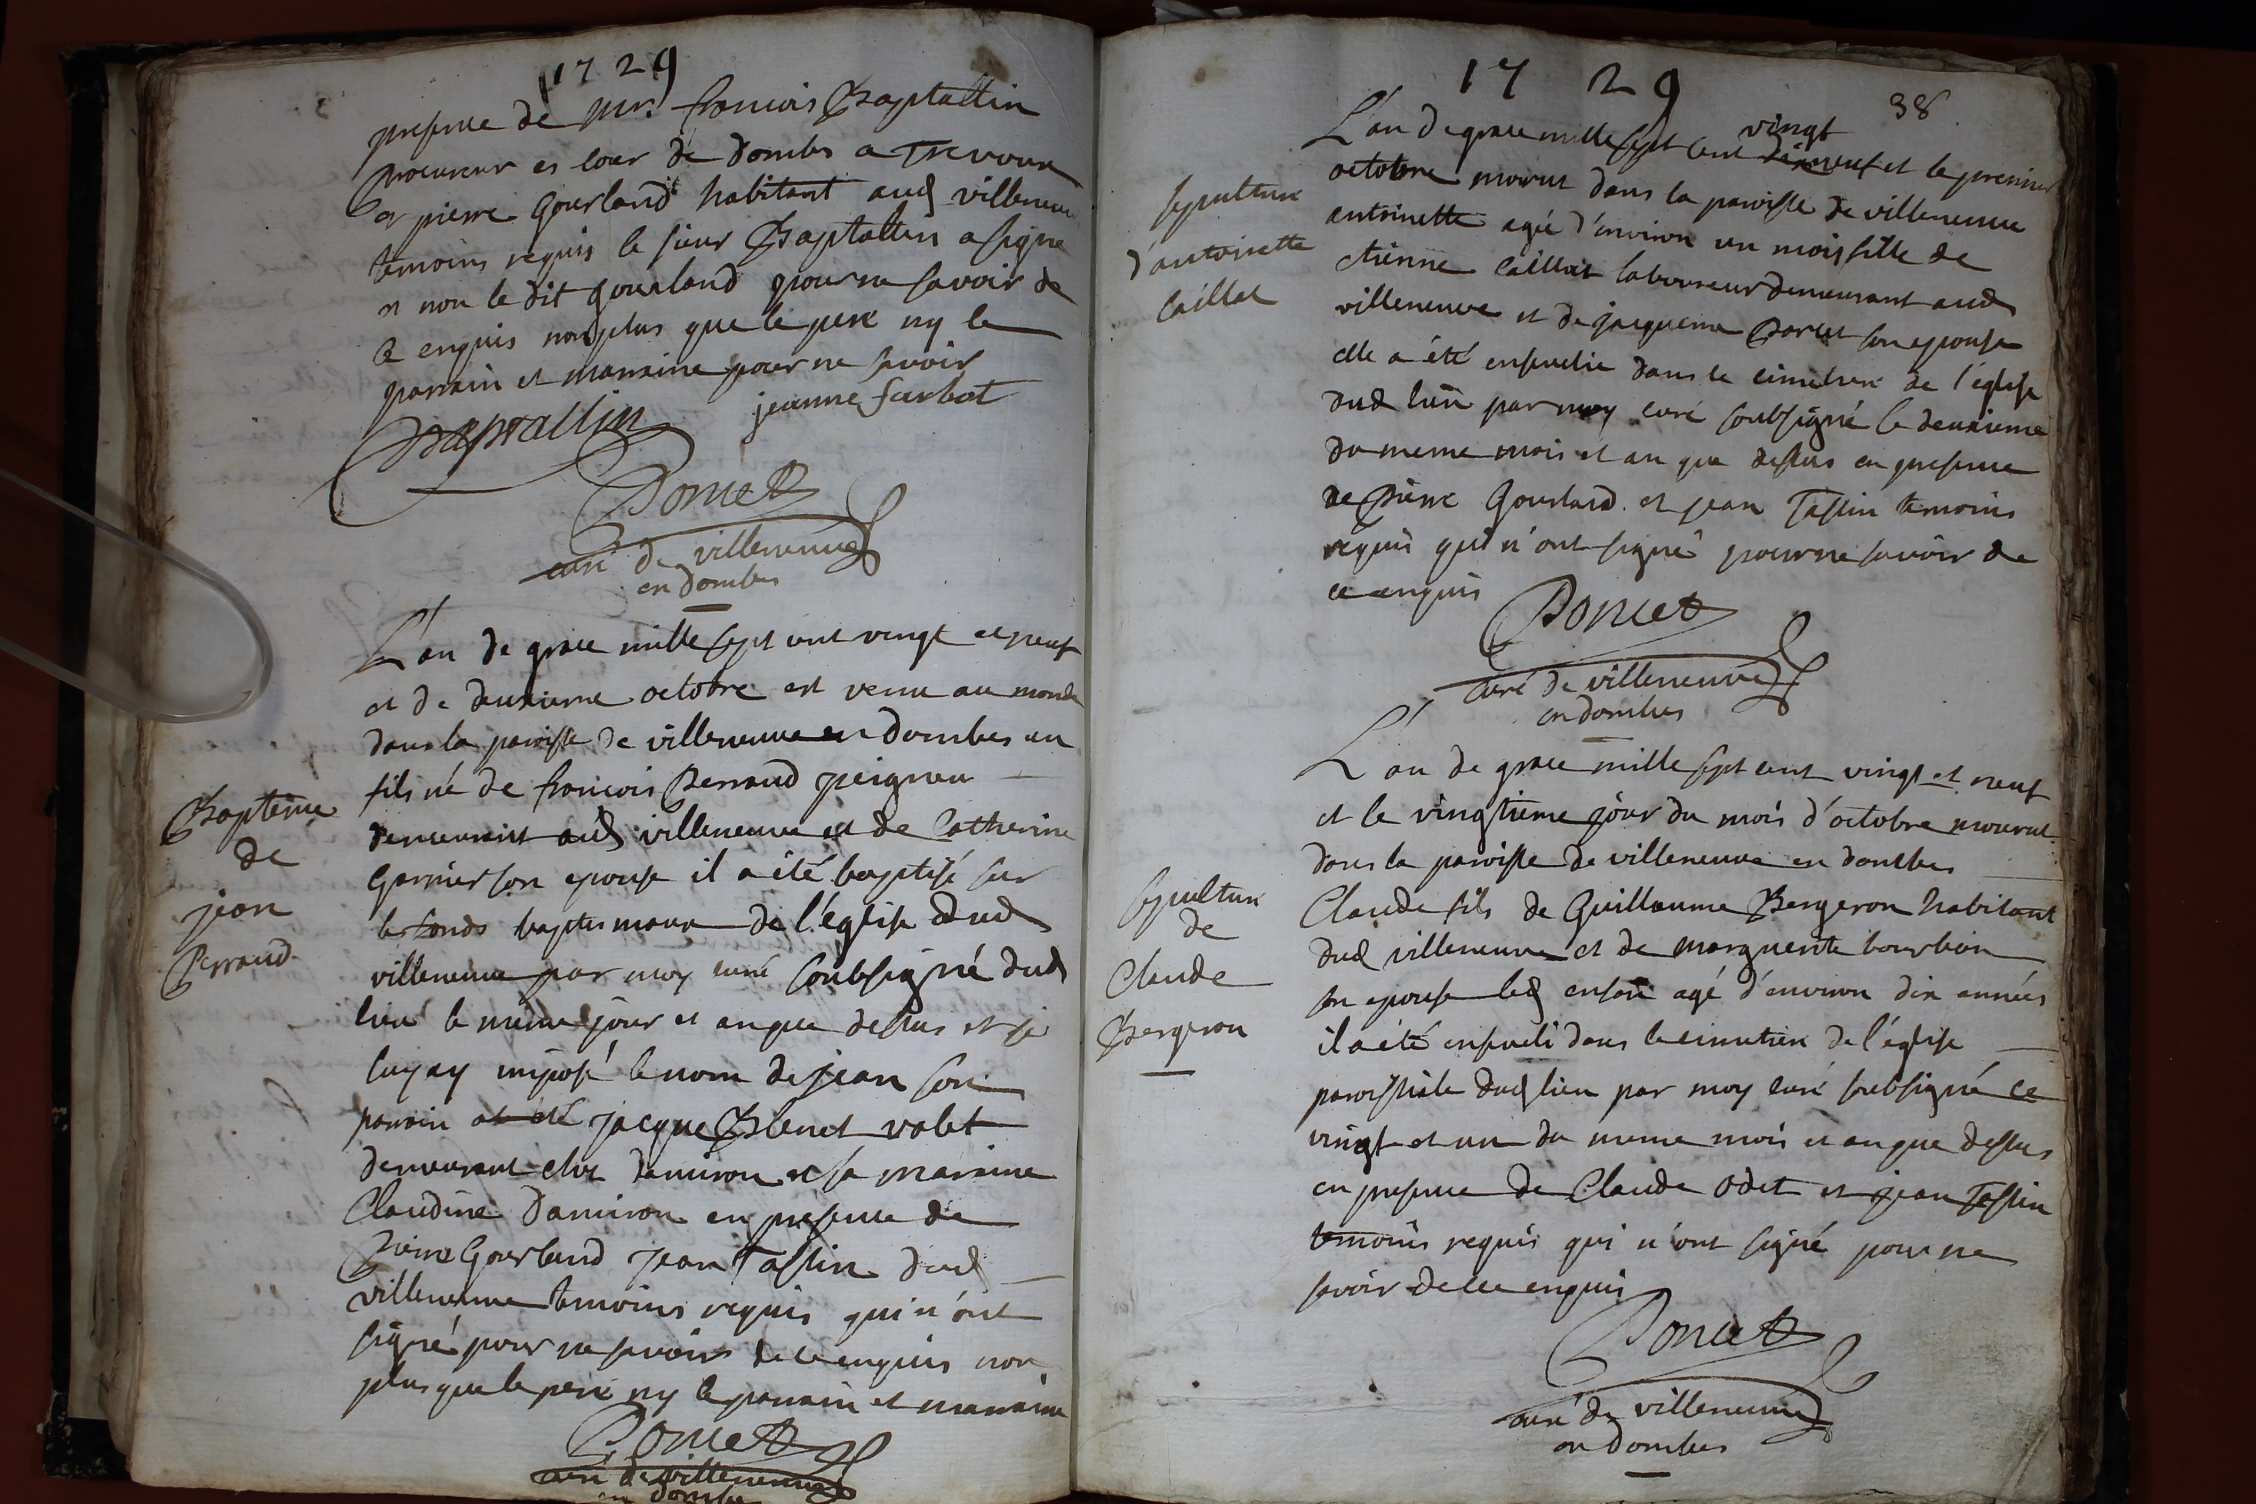 1729
presence de Mr. francois Baptallin
procureur es cour de dombes a Trevoux
et pierre Gourland habitant aud villeneuve
temoins requis le sieur Baptallin a signe
et non le dit gourland pour ne savoir de
ce enquis non plus que le pere ny le
parrain et marraine pour ne savoir
Baptallin jeanne farbot
Poncet
curé de villeneuve
en dombes
L'an de grace mille sept cent vingt et neuf
et de deuxieme octobre est venu au monde
dans la paroisse de villeneuve en dombes un
fils né de francois Perraud peigneu
demeurant aud villeneuve et de Catherine
Garnier son epouse il a été baptisé sur
les fonds baptismaux de l'église dud
villeneuve par moy curé soubsigné dud
lieu le même jour et an que dessus et je
luy ay imposé le nom de jean son
parain at été jacque Blenet valet
demeurant chez damiron et sa maraine
Claudine Damiron en presence de
Pierre Gourland jean Tassin dud
villeneuve temoins requis qui n'ont
signé pour ne savoir de ce enquis non
plus que le pere ny le parrain et marraine
Poncet
curé de villeneuve
en dombes
Baptême
de
jean
Perraud
1729
38
L'an de grace mille sept cent vingt dix neuf et le premier
octobre morut dans la paroisse de villeneuve
antoinette agée d'environ un mois fille de
etienne Caillat laboureur demeurant aud
villeneuve et de jacquema Poncet son epouse
elle a été ensevelie dans le cimetiere de l'église
dud lieu par moy curé soubsigné le deuxieme
du meme mois et an que dessus en presence
de Pierre Gourland et jean Tassin temoins
requis qui n'ont signé pour ne savoir de
ce enquis
Poncet
curé de villeneuve
en dombes
sepulture
d'antoinette
Caillat
L'an de grace mille sept cent vingt et neuf
et le vingtieme jour du mois d'octobre mourut
dans la paroisse de villeneuve en dombes
Claude fils de Guillaume Bergeron habitant
dud villeneuve et de marguerite bourbon
son epouse led enfant agé d'environ dix années
il a été enseveli dans le cimetiere de l'église
paroissiale dud lieu par moy curé soubsigné ce
vingt et un du meme mois et an que dessus
en presence de Claude Odet et jean Tassin
temoins requis qui n'ont signé pour ne
savoir de ce enquis
Poncet
curé de villeneuve
en dombes
sepulture
de
Claude
Bergeron